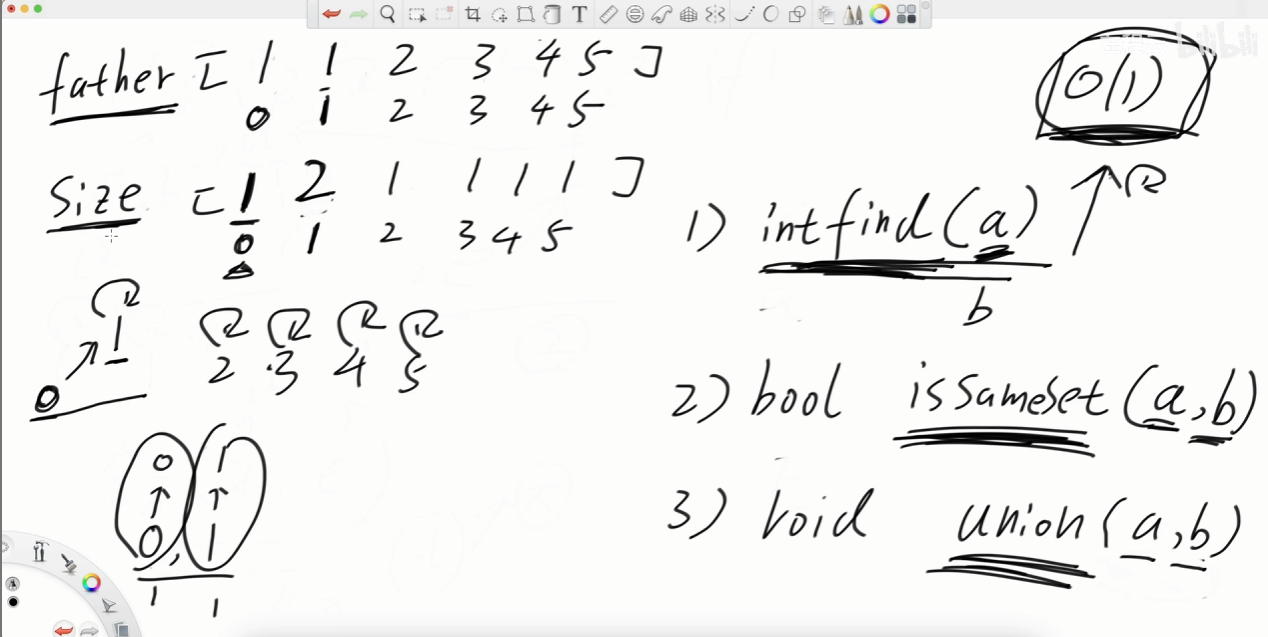 father [ 1 1 2 3 4 5 ]
0 1 2 3 4 5
Size [ 1 2 1 1 1 1 ]
0 1 2 3 4 5
1
0
2 3 4 5
0 1
0, 1
1 1
bilibili
O(1)
1) int find(a)
b
2) bool issameset(a,b)
3) void union(a,b)
T